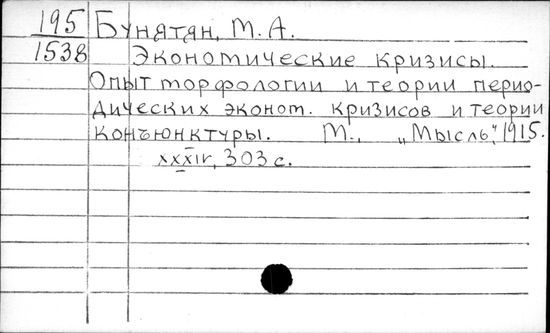 195 Бунятян, М. А.
1538 Экономические кризисы.
Опыт морфологии и теории перио-
дических эконом. кризисов и теории
конъюнктуры. М., „Мысль", 1915.
XXXIV, 303 с.